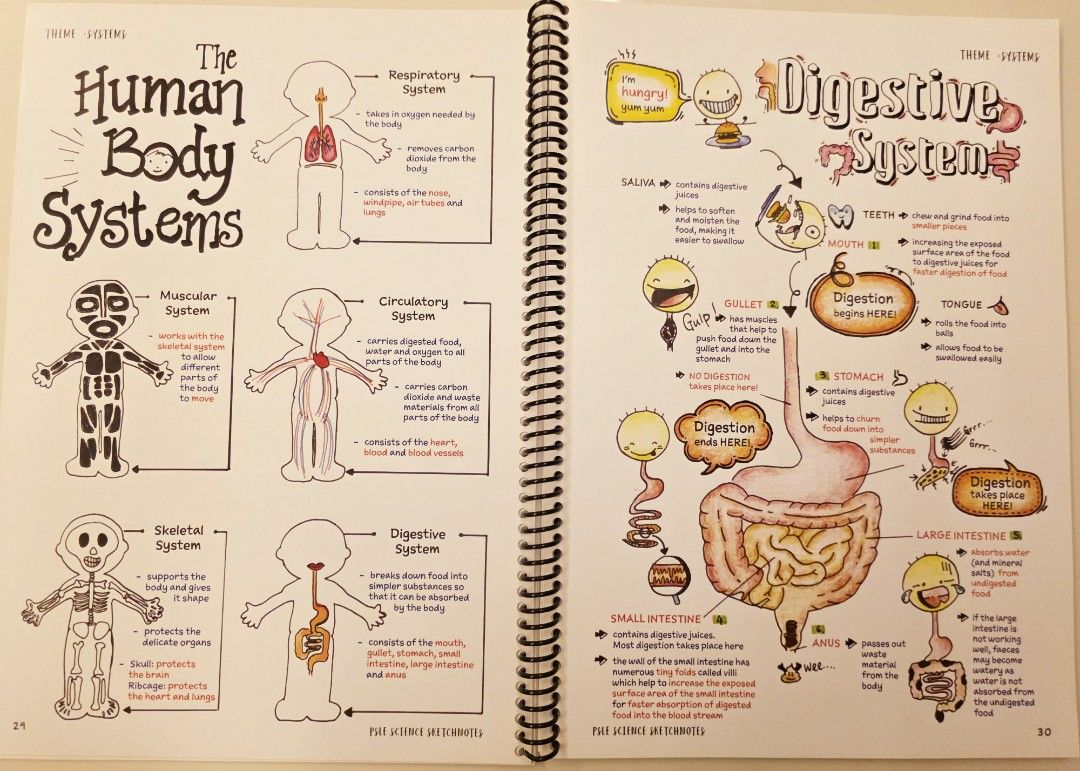 THEME : SYSTEMS
The
Human
Body
Systems
Respiratory
System
- takes in oxygen needed by
the body
- removes carbon
dioxide from the
body
- consists of the nose,
windpipe, air tubes and
lungs
Muscular
System
- works with the
skeletal system
to allow
different
parts of
the body
to move
Circulatory
System
- carries digested food,
water and oxygen to all
parts of the body
- carries carbon
dioxide and waste
materials from all
parts of the body
- consists of the heart,
blood and blood vessels
Skeletal
System
- supports the
body and gives
it shape
- protects the
delicate organs
- Skull: protects
the brain
Ribcage: protects
the heart and lungs
Digestive
System
- breaks down food into
simpler substances so
that it can be absorbed
by the body
- consists of the mouth,
gullet, stomach, small
intestine, large intestine
and anus
29
PSLE SCIENCE SKETCHNOTES
THEME : SYSTEMS
I'm
hungry!
yum yum
Digestive
System
SALIVA
contains digestive
juices
helps to soften
and moisten the
food, making it
easier to swallow
TEETH
chew and grind food into
smaller pieces
MOUTH 1
increasing the exposed
surface area of the food
to digestive juices for
faster digestion of food
Digestion
begins HERE!
TONGUE
rolls the food into
balls
allows food to be
swallowed easily
GULLET 2
Gulp!
has muscles
that help to
push food down the
gullet and into the
stomach
NO DIGESTION
takes place here!
3 STOMACH
contains digestive
juices
helps to churn
food down into
simpler
substances
Grrr...
Grrr...
Digestion
takes place
HERE!
Digestion
ends HERE!
LARGE INTESTINE 5
absorbs water
(and mineral
salts) from
undigested
food
if the large
intestine is
not working
well, faeces
may become
watery as
water is not
absorbed from
the undigested
food
SMALL INTESTINE 4
contains digestive juices.
Most digestion takes place here
the wall of the small intestine has
numerous tiny folds called villi
which help to increase the exposed
surface area of the small intestine
for faster absorption of digested
food into the blood stream
6
ANUS
passes out
waste
material
from the
body
wee...
PSLE SCIENCE SKETCHNOTES
30